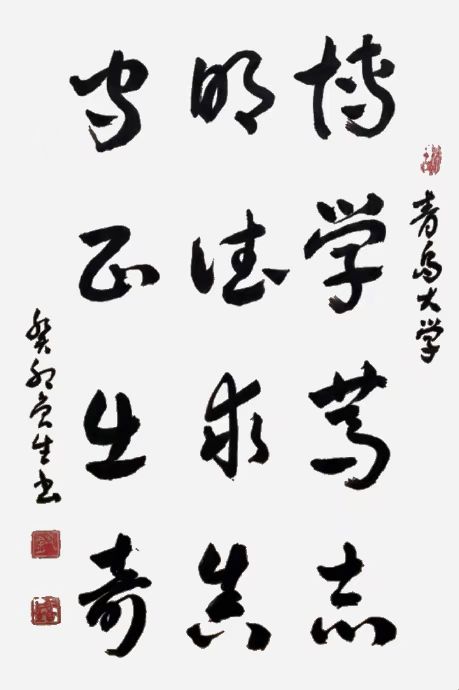 青岛大学
博学笃志
明德求真
守正出奇
癸卯生书